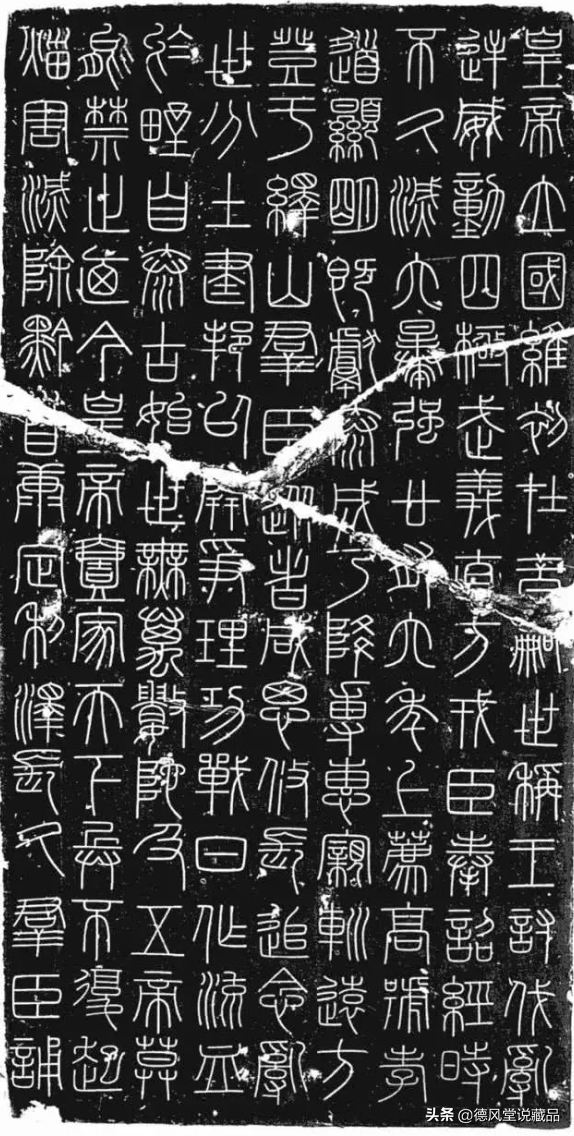 皇帝立國維初在昔嗣世稱王討伐亂
逆威動四極武義直方戎臣奉詔經時
不久滅六暴強廿有六年上薦高號孝
道顯明既獻泰成乃降尃惠寴巡遠方
登于繹山羣臣從者咸思攸長追念亂
世分土建邦以開爭理功戰日作流血
於野自泰古始世無萬數陀及五帝莫
能禁止廼今皇帝壹家天下兵不復起
災害滅除黔首康定利澤長久羣臣誦
头条 @德风堂说藏品